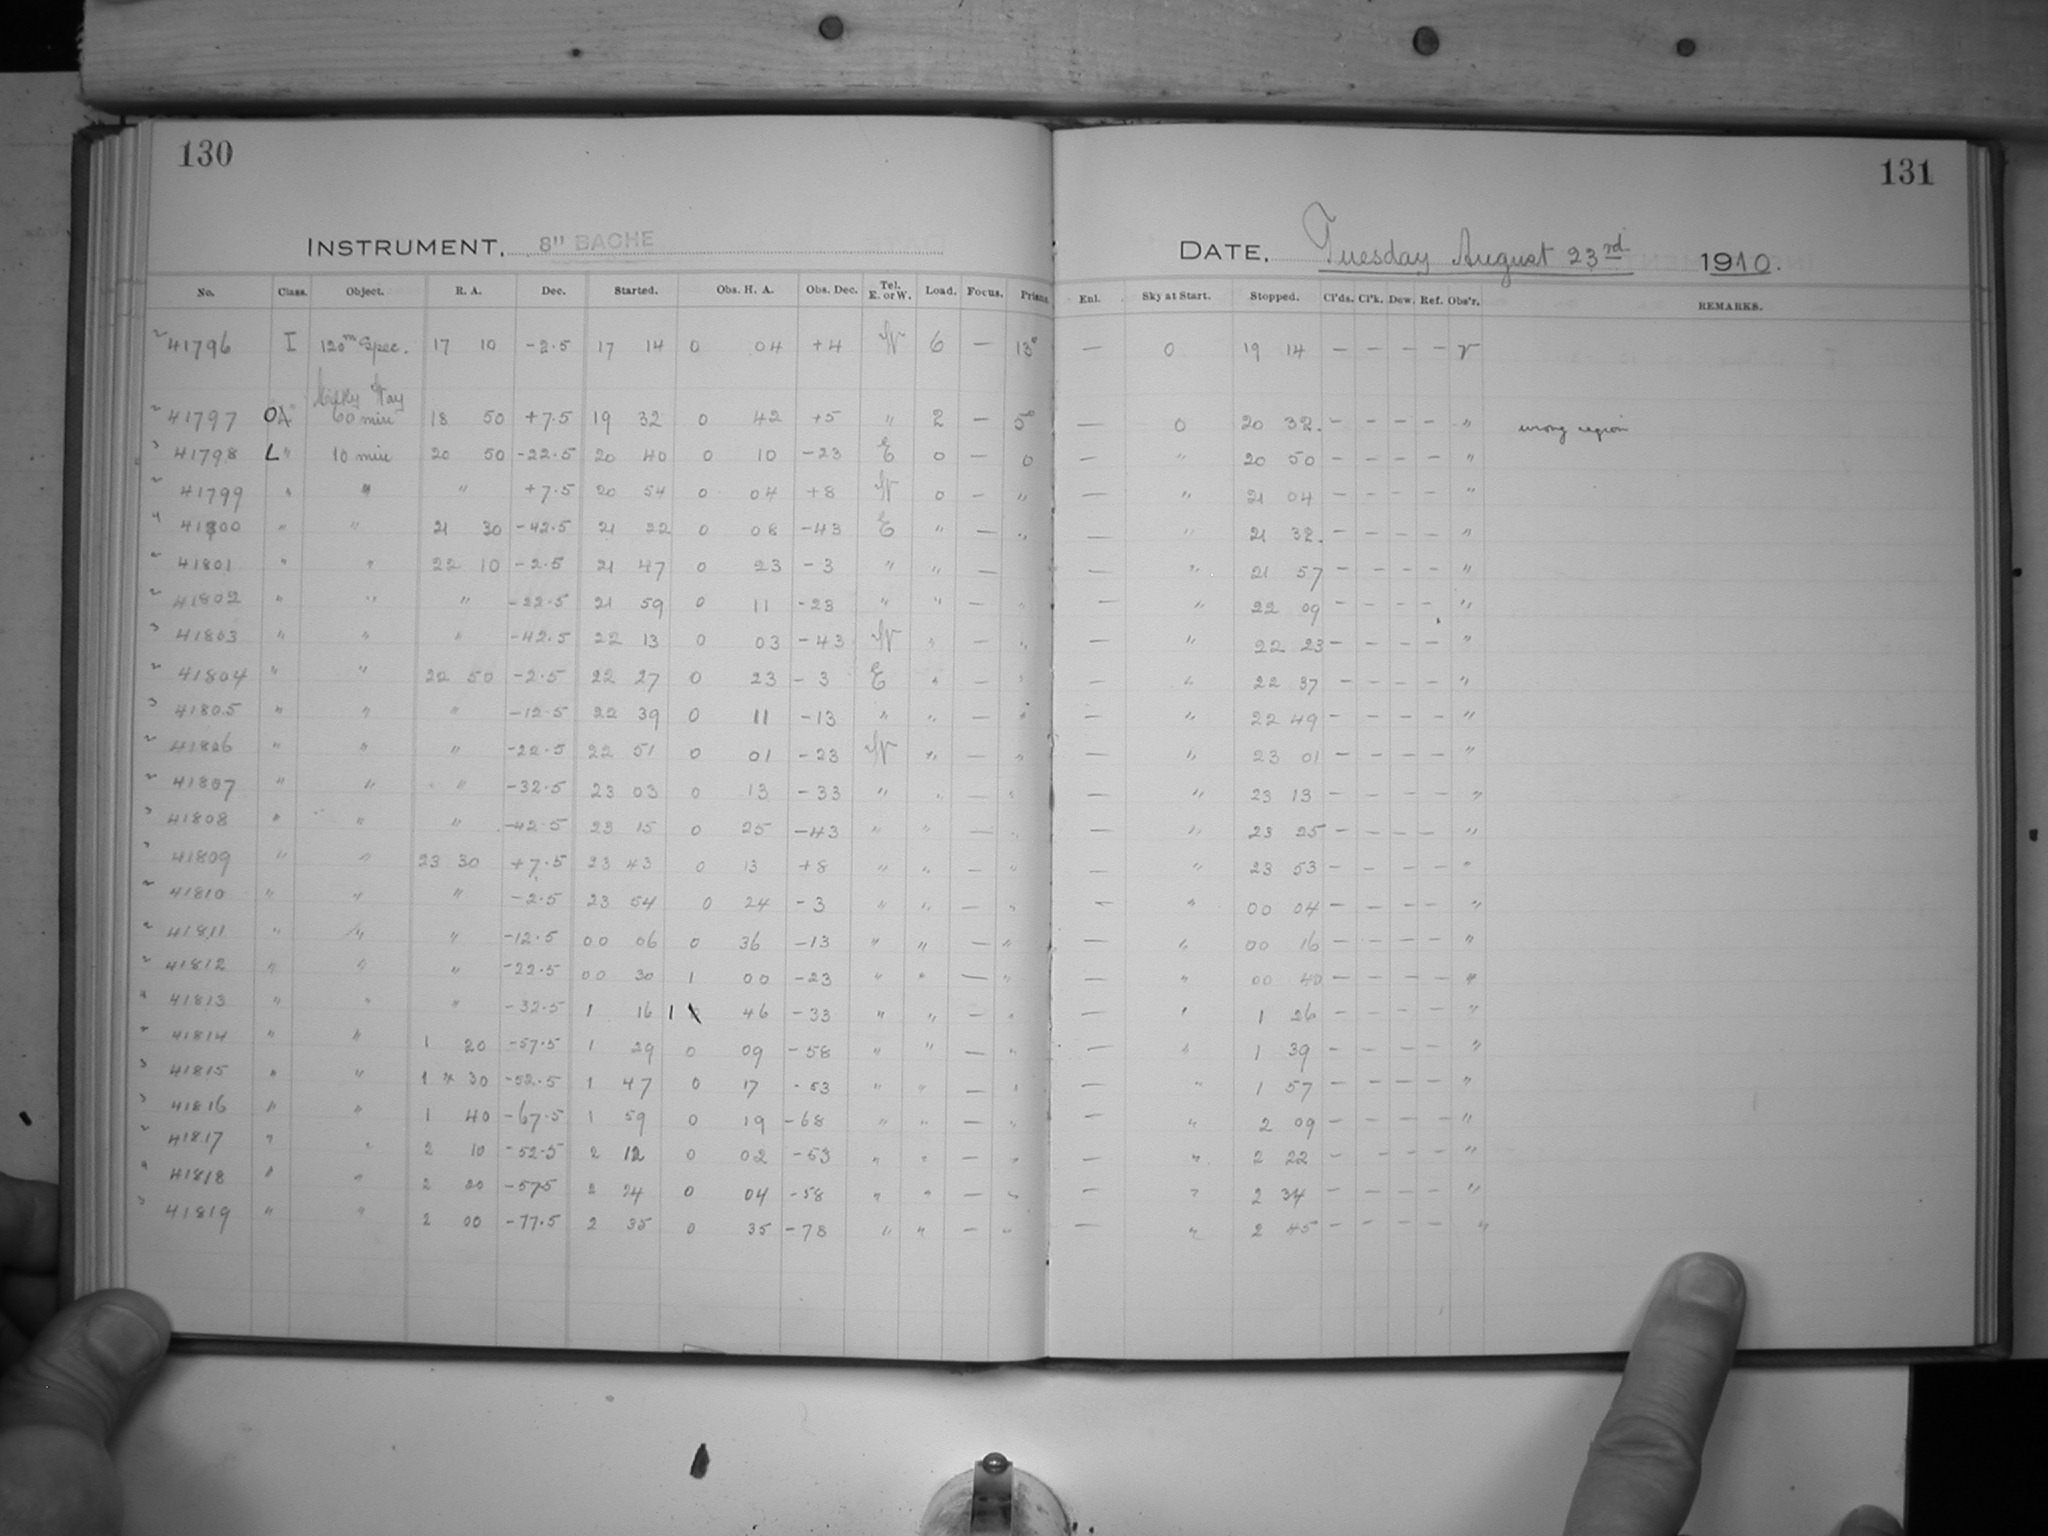 130
131
INSTRUMENT. 8" BACHE
DATE. Tuesday August 23rd 1910.
No. Class. Object. R. A. Dec. Started. Obs. H. A. Obs. Dec. Tel. E. or W. Load. Focus. Prism. Enl. Sky at Start. Stopped. Cl'ds. Cl'k. Dew. Ref. Obs'r. REMARKS.
2 41796 I 120m Spec. 17 10 -2.5 17 14 0 04 +4 W 6 — 13° — 0 19 14 — — — — r
Milky Way
2 41797 60 min 18 50 +7.5 19 32 0 42 +5 " 2 — 5° — 0 20 32. — — — — " wrong region
3 41798 L " 10 min 20 50 -22.5 20 40 0 10 -23 E 0 — 0 — " 20 50 — — — — "
2 41799 " " " +7.5 20 54 0 04 +8 W 0 — " — " 21 04 — — — — "
4 41800 " " 21 30 -42.5 21 22 0 08 -43 E " — " — " 21 32. — — — — "
2 41801 " " 22 10 -2.5 21 47 0 23 -3 " " — — " 21 57 — — — — "
2 41802 " " " -22.5 21 59 0 11 -23 " " — " — " 22 09 — — — — "
3 41803 " " " -42.5 22 13 0 03 -43 W " — " — " 22 23 — — — — "
2 41804 " " 22 50 -2.5 22 27 0 23 -3 E " — " — " 22 37 — — — — "
3 41805 " " " -12.5 22 39 0 11 -13 " " — " — " 22 49 — — — — "
2 41806 " " " -22.5 22 51 0 01 -23 W " — " — " 23 01 — — — — "
2 41807 " " " -32.5 23 03 0 13 -33 " " — " — " 23 13 — — — — "
3 41808 " " " -42.5 23 15 0 25 -43 " " — " — " 23 25 — — — — "
41809 " " 23 30 +7.5 23 43 0 13 +8 " " — " — " 23 53 — — — — "
2 41810 " " " -2.5 23 54 0 24 -3 " " — " — " 00 04 — — — — "
2 41811 " " " -12.5 00 06 0 36 -13 " " — " — " 00 16 — — — — "
2 41812 " " " -22.5 00 30 1 00 -23 " " — " — " 00 40 — — — — "
4 41813 " " " -32.5 1 16 1 46 -33 " " — " — " 1 26 — — — — "
2 41814 " " 1 20 -57.5 1 29 0 09 -58 " " — " — " 1 39 — — — — "
3 41815 " " 1 30 -52.5 1 47 0 17 -53 " " — " — " 1 57 — — — — "
3 41816 " " 1 40 -67.5 1 59 0 19 -68 " " — " — " 2 09 — — — — "
2 41817 " " 2 10 -52.5 2 12 0 02 -53 " " — " — " 2 22 — — — — "
4 41818 " " 2 20 -57.5 2 24 0 04 -58 " " — " — " 2 34 — — — — "
3 41819 " " 2 00 -77.5 2 35 0 35 -78 " " — " — " 2 45 — — — — "